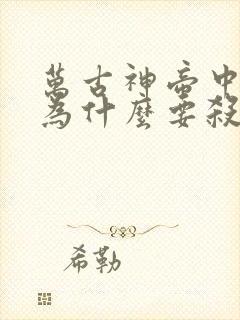 萬古神帝中
為什麼要殺
希勒